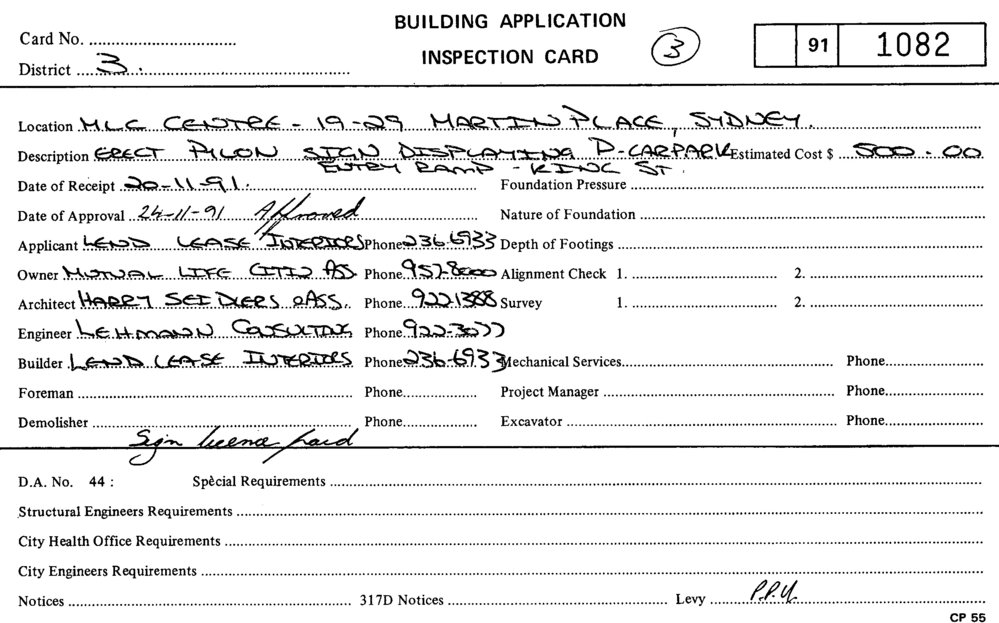 BUILDING APPLICATION
INSPECTION CARD
Card No.
3
91 1082
District 3.
Location MLC CENTRE - 19-29 MARTIN PLACE, SYDNEY.
Description ERECT PYLON SIGN DISPLAYING P-CARPARK Estimated Cost $ 500.00
ENTRY RAMP - KING ST.
Date of Receipt 20-11-91. Foundation Pressure
Date of Approval 24-11-91 Approved Nature of Foundation
Applicant LEND LEASE INTERIORS Phone 236.6933 Depth of Footings
Owner MUTUAL LIFE CITIZ ASS. Phone 957-8000 Alignment Check 1. 2.
Architect HARRY SEIDLERS & ASS. Phone 922.1388 Survey 1. 2.
Engineer LEHMANN CONSULTING Phone 922-3077
Builder LEND LEASE INTERIORS Phone 236-6933 Mechanical Services Phone
Foreman Phone Project Manager Phone
Demolisher Phone Excavator Phone
Sign licence paid
D.A. No. 44 : Special Requirements
Structural Engineers Requirements
City Health Office Requirements
City Engineers Requirements
Notices 317D Notices Levy
CP 55